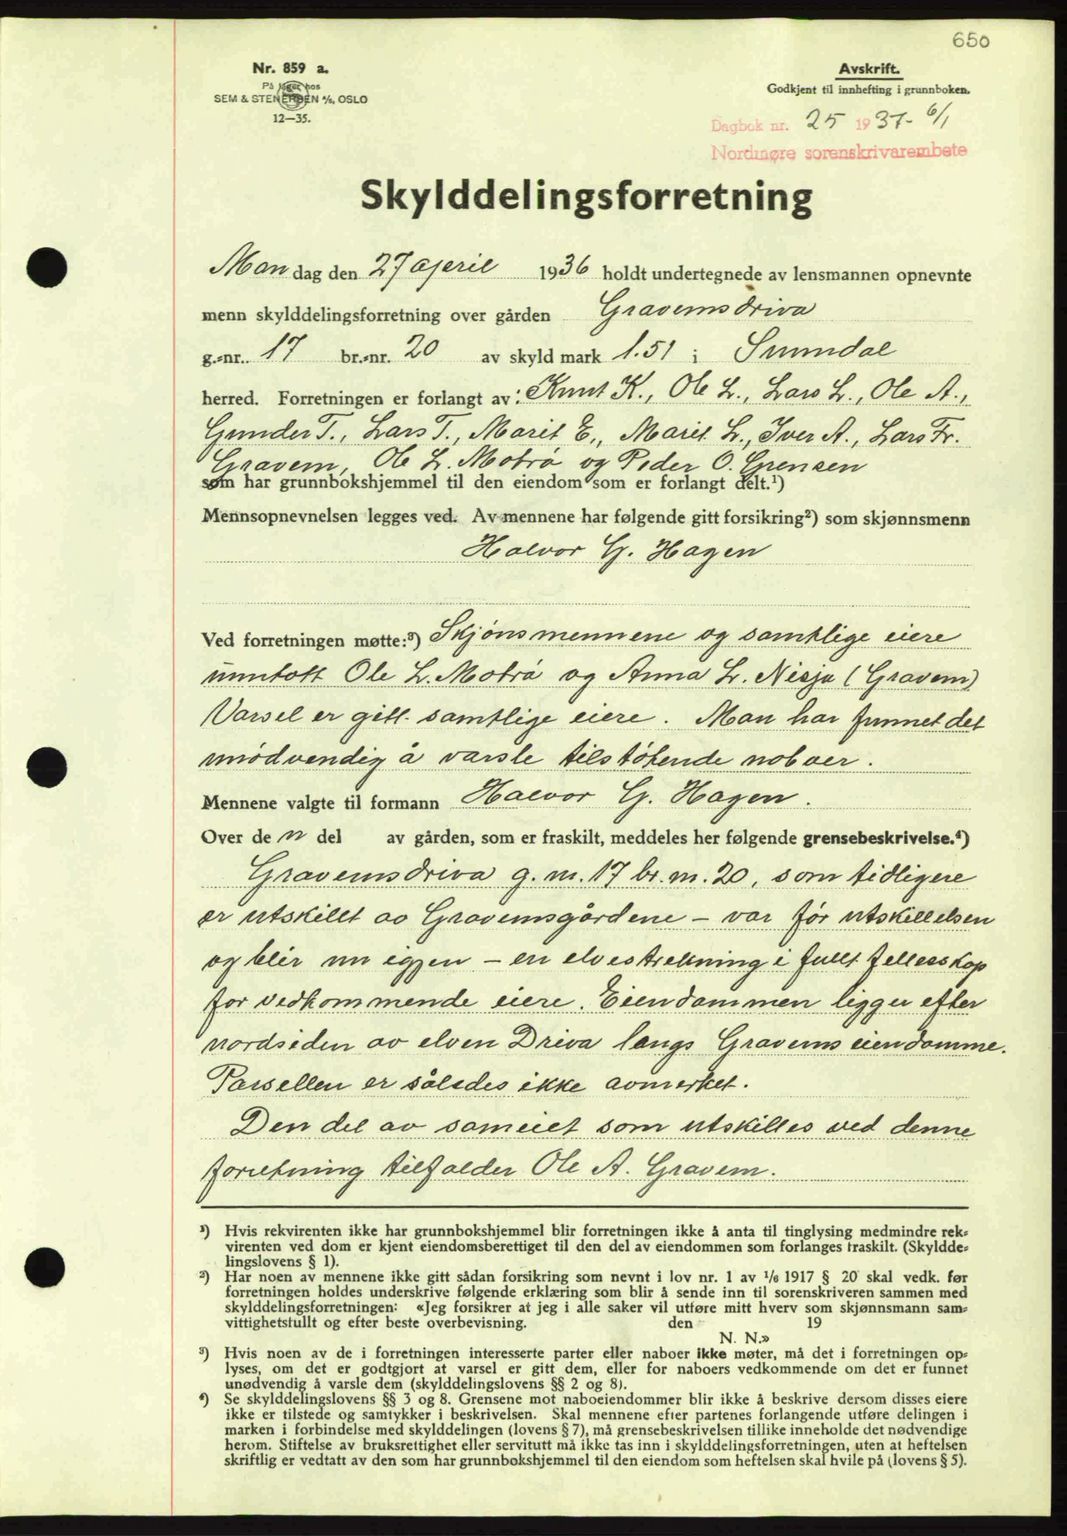 650
Nr. 859 a.
På lager hos
SEM & STENERSEN A/S, OSLO
12—35.
Avskrift.
Godkjent til innhefting i grunnboken.
Dagbok nr. 25 1937- 6/1
Nordmøre sorenskrivarembete
Skylddelingsforretning
Man dag den 27 april 1936 holdt undertegnede av lensmannen opnevnte
menn skylddelingsforretning over gården Gravemsdriva
g.-nr. 17 br.-nr. 20 av skyld mark 1.51 i Sunndal
herred. Forretningen er forlangt av: Knut K., Ole L., Lars L., Ole A.,
Gunder T., Lars T., Marit E., Marit L., Iver A., Lars Fr.
Gravem, Ole L. Motrø og Peder O. Grensen
som har grunnbokshjemmel til den eiendom som er forlangt delt.¹)
Mennsopnevnelsen legges ved. Av mennene har følgende gitt forsikring²) som skjønnsmenn
Halvor G. Hagen
Ved forretningen møtte:³) Skjønsmennene og samtlige eiere
unntatt Ole L. Motrø og Anna L. Nisja (Gravem)
Varsel er gitt samtlige eiere. Man har funnet det
unødvendig å varsle tilstøtende naboer.
Mennene valgte til formann Halvor G. Hagen.
Over de n del av gården, som er fraskilt, meddeles her følgende grensebeskrivelse.⁴)
Gravemsdriva g. nr. 17 br. nr. 20, som tidligere
er utskillt av Gravemsgårdene – var før utskillelsen
og blir nu igjen – en elvestrekning i fullt fellesskap
for vedkommende eiere. Eiendommen ligger efter
nordsiden av elven Driva langs Gravems eiendomme.
Parsellen er således ikke avmerket.
Den del av sameiet som utskilles ved denne
forretning tilfalder Ole A. Gravem.
¹) Hvis rekvirenten ikke har grunnbokshjemmel blir forretningen ikke å anta til tinglysing medmindre rek-
virenten ved dom er kjent eiendomsberettiget til den del av eiendommen som forlanges fraskilt. (Skyldde-
lingslovens § 1).
²) Har noen av mennene ikke gitt sådan forsikring som nevnt i lov nr. 1 av 1/6 1917 § 20 skal vedk. før
forretningen holdes underskrive følgende erklæring som blir å sende inn til sorenskriveren sammen med
skylddelingsforretningen: «Jeg forsikrer at jeg i alle saker vil utføre mitt hverv som skjønnsmann sam-
vittighetsfullt og efter beste overbevisning. den 19
N. N.»
³) Hvis noen av de i forretningen interesserte parter eller naboer ikke møter, må det i forretningen op-
lyses, om det er godtgjort at varsel er gitt dem, eller for naboers vedkommende om det er funnet
unødvendig å varsle dem (skylddelingslovens §§ 2 og 8).
⁴) Se skylddelingslovens §§ 3 og 8. Grensene mot naboeiendommer blir ikke å beskrive dersom disses eiere
ikke er tilstede og samtykker i beskrivelsen. Skal mennene efter partenes forlangende utføre delingen i
marken i forbindelse med skylddelingen (lovens § 7), må grensebeskrivelsen tillike inneholde det nødvendige
herom. Stiftelse av bruksrettighet eller servitutt må ikke tas inn i skylddelingsforretningen, uten at heftelsen
skriftlig er vedtatt av den som har grunnbokshjemmel til den eiendom som heftelsen skal hvile på (lovens § 5).